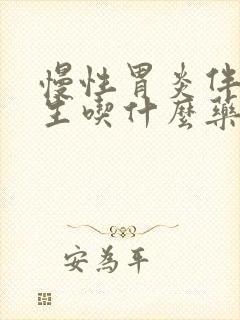 慢性胃炎伴
生喫什麼藥
安為平